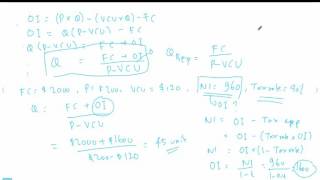 OI = (P×Q) - (VCU×Q) - FC
OI = Q (P-VCU) - FC
Q (P-VCU) = FC + OI
Q = FC + OI / P-VCU
Q BEP = FC / P-VCU
FC = $2000, P = $200, VCU = $120, NI = 960, Tax rate = 40%
↳ OI?
Q = FC + OI / P-VCU
= $2000 + $1600 / $200 - $120 = 45 unit
NI = OI - Tax exp
= OI - (Tax rate × OI)
NI = OI × (1 - Tax rate)
OI = NI / 1-t = 960 / 1-0.4 = 1600